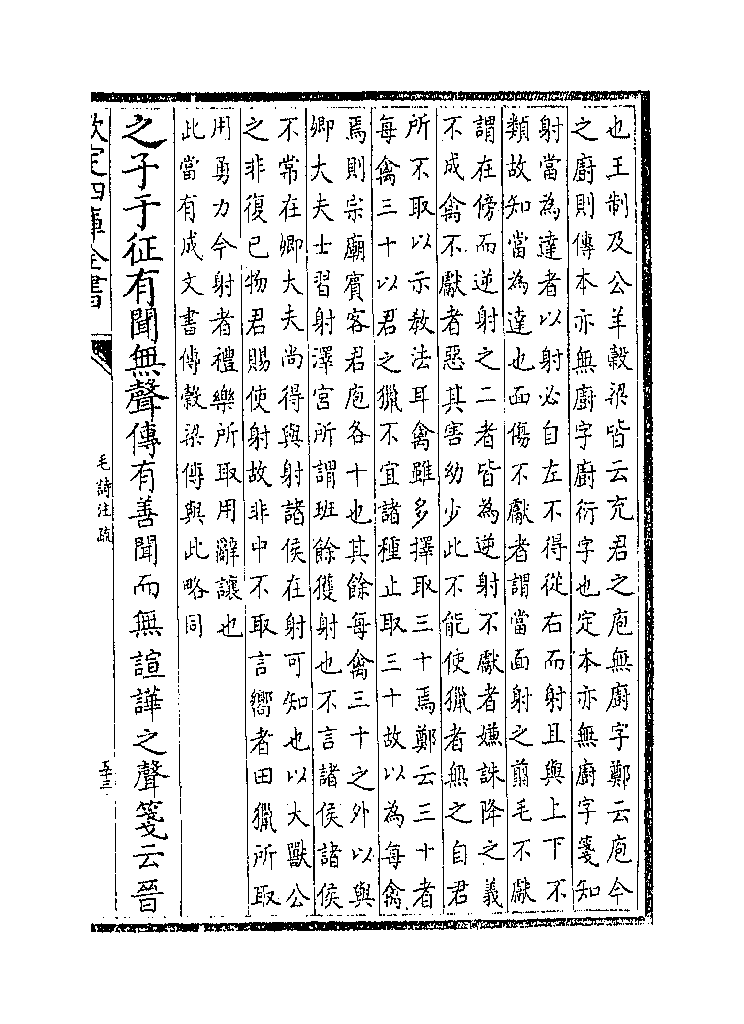 也王制及公羊穀梁皆云充君之庖無廚字鄭云庖今
之廚則傳本亦無廚字廚衍字也定本亦無廚字箋知
射當為達者以射必自左不得從右而射且與上下不
類故知當為達也面傷不獻者謂當面射之翦毛不獻
謂在傍而逆射之二者皆為逆射不獻者嫌誅降之義
不成禽不獻者惡其害幼少此不能使獵者無之自君
所不取以示教法耳禽雖多擇取三十焉鄭云三十者
每禽三十以君之獵不宜諸種止取三十故以為每禽
焉則宗廟賓客君庖各十也其餘每禽三十之外以與
卿大夫士習射澤宮所謂班餘獲射也不言諸侯諸侯
不常在卿大夫尚得與射諸侯在射可知也以大獸公
之非復已物君賜使射故非中不取言嚮者田獵所取
用勇力今射者禮樂所取用辭讓也
此當有成文書傳穀梁傳與此略同
之子于征有聞無聲傳有善聞而無諠譁之聲箋云晉
欽定四庫全書
毛詩注疏
五十三